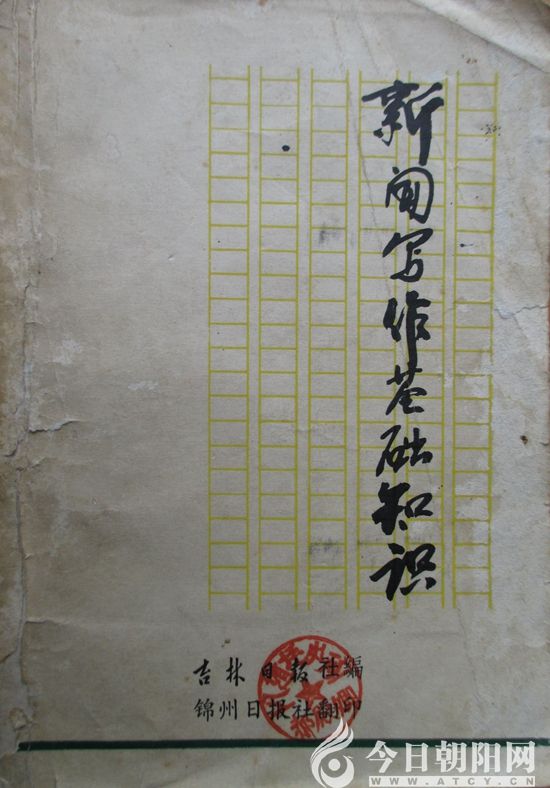 新闻写作基础知识
吉林日报社编
锦州日报社翻印
今日朝阳网
WWW.ATCY.CN